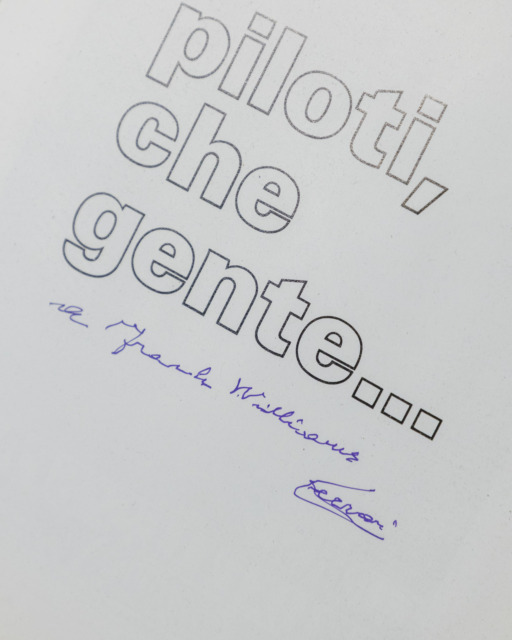 piloti,
che
gente...
a Frank Williams
Ferrari